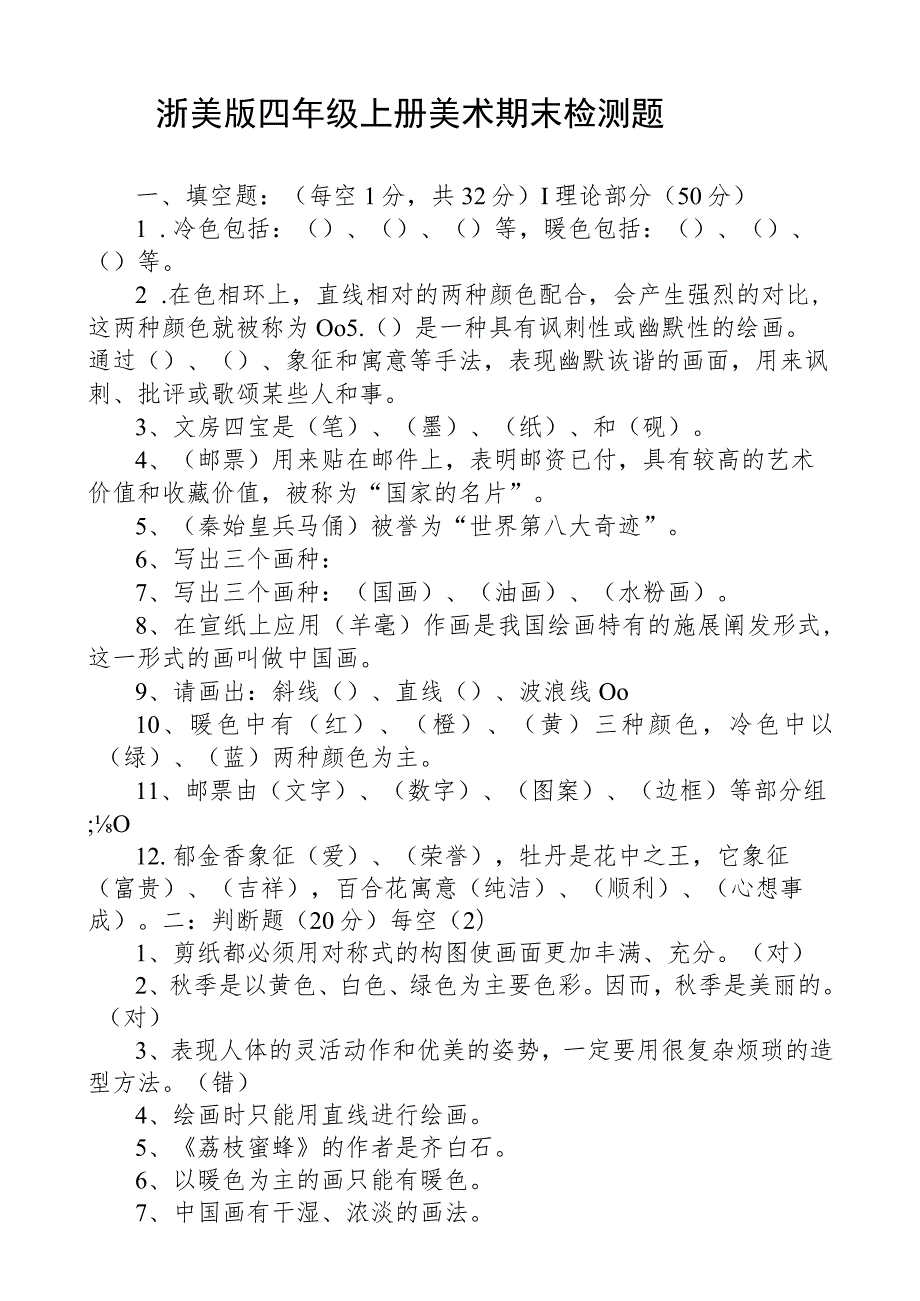 浙美版四年级上册美术期末检测题
一、填空题：（每空1分，共32分）I理论部分（50分）
1 .冷色包括：（）、（）、（）等，暖色包括：（）、（）、
（）等。
2 .在色相环上，直线相对的两种颜色配合，会产生强烈的对比，
这两种颜色就被称为Oo5.（）是一种具有讽刺性或幽默性的绘画。
通过（）、（）、象征和寓意等手法，表现幽默诙谐的画面，用来讽
刺、批评或歌颂某些人和事。
3、文房四宝是（笔）、（墨）、（纸）、和（砚）。
4、（邮票）用来贴在邮件上，表明邮资已付，具有较高的艺术
价值和收藏价值，被称为“国家的名片”。
5、（秦始皇兵马俑）被誉为“世界第八大奇迹”。
6、写出三个画种：
7、写出三个画种：（国画）、（油画）、（水粉画）。
8、在宣纸上应用（羊毫）作画是我国绘画特有的施展阐发形式，
这一形式的画叫做中国画。
9、请画出：斜线（）、直线（）、波浪线Oo
10、暖色中有（红）、（橙）、（黄）三种颜色，冷色中以
（绿）、（蓝）两种颜色为主。
11、邮票由（文字）、（数字）、（图案）、（边框）等部分组
;⅛O
12.郁金香象征（爱）、（荣誉），牡丹是花中之王，它象征
（富贵）、（吉祥），百合花寓意（纯洁）、（顺利）、（心想事
成）。二：判断题（20分）每空（2）
1、剪纸都必须用对称式的构图使画面更加丰满、充分。（对）
2、秋季是以黄色、白色、绿色为主要色彩。因而，秋季是美丽的。
（对）
3、表现人体的灵活动作和优美的姿势，一定要用很复杂烦琐的造
型方法。（错）
4、绘画时只能用直线进行绘画。
5、《荔枝蜜蜂》的作者是齐白石。
6、以暖色为主的画只能有暖色。
7、中国画有干湿、浓淡的画法。